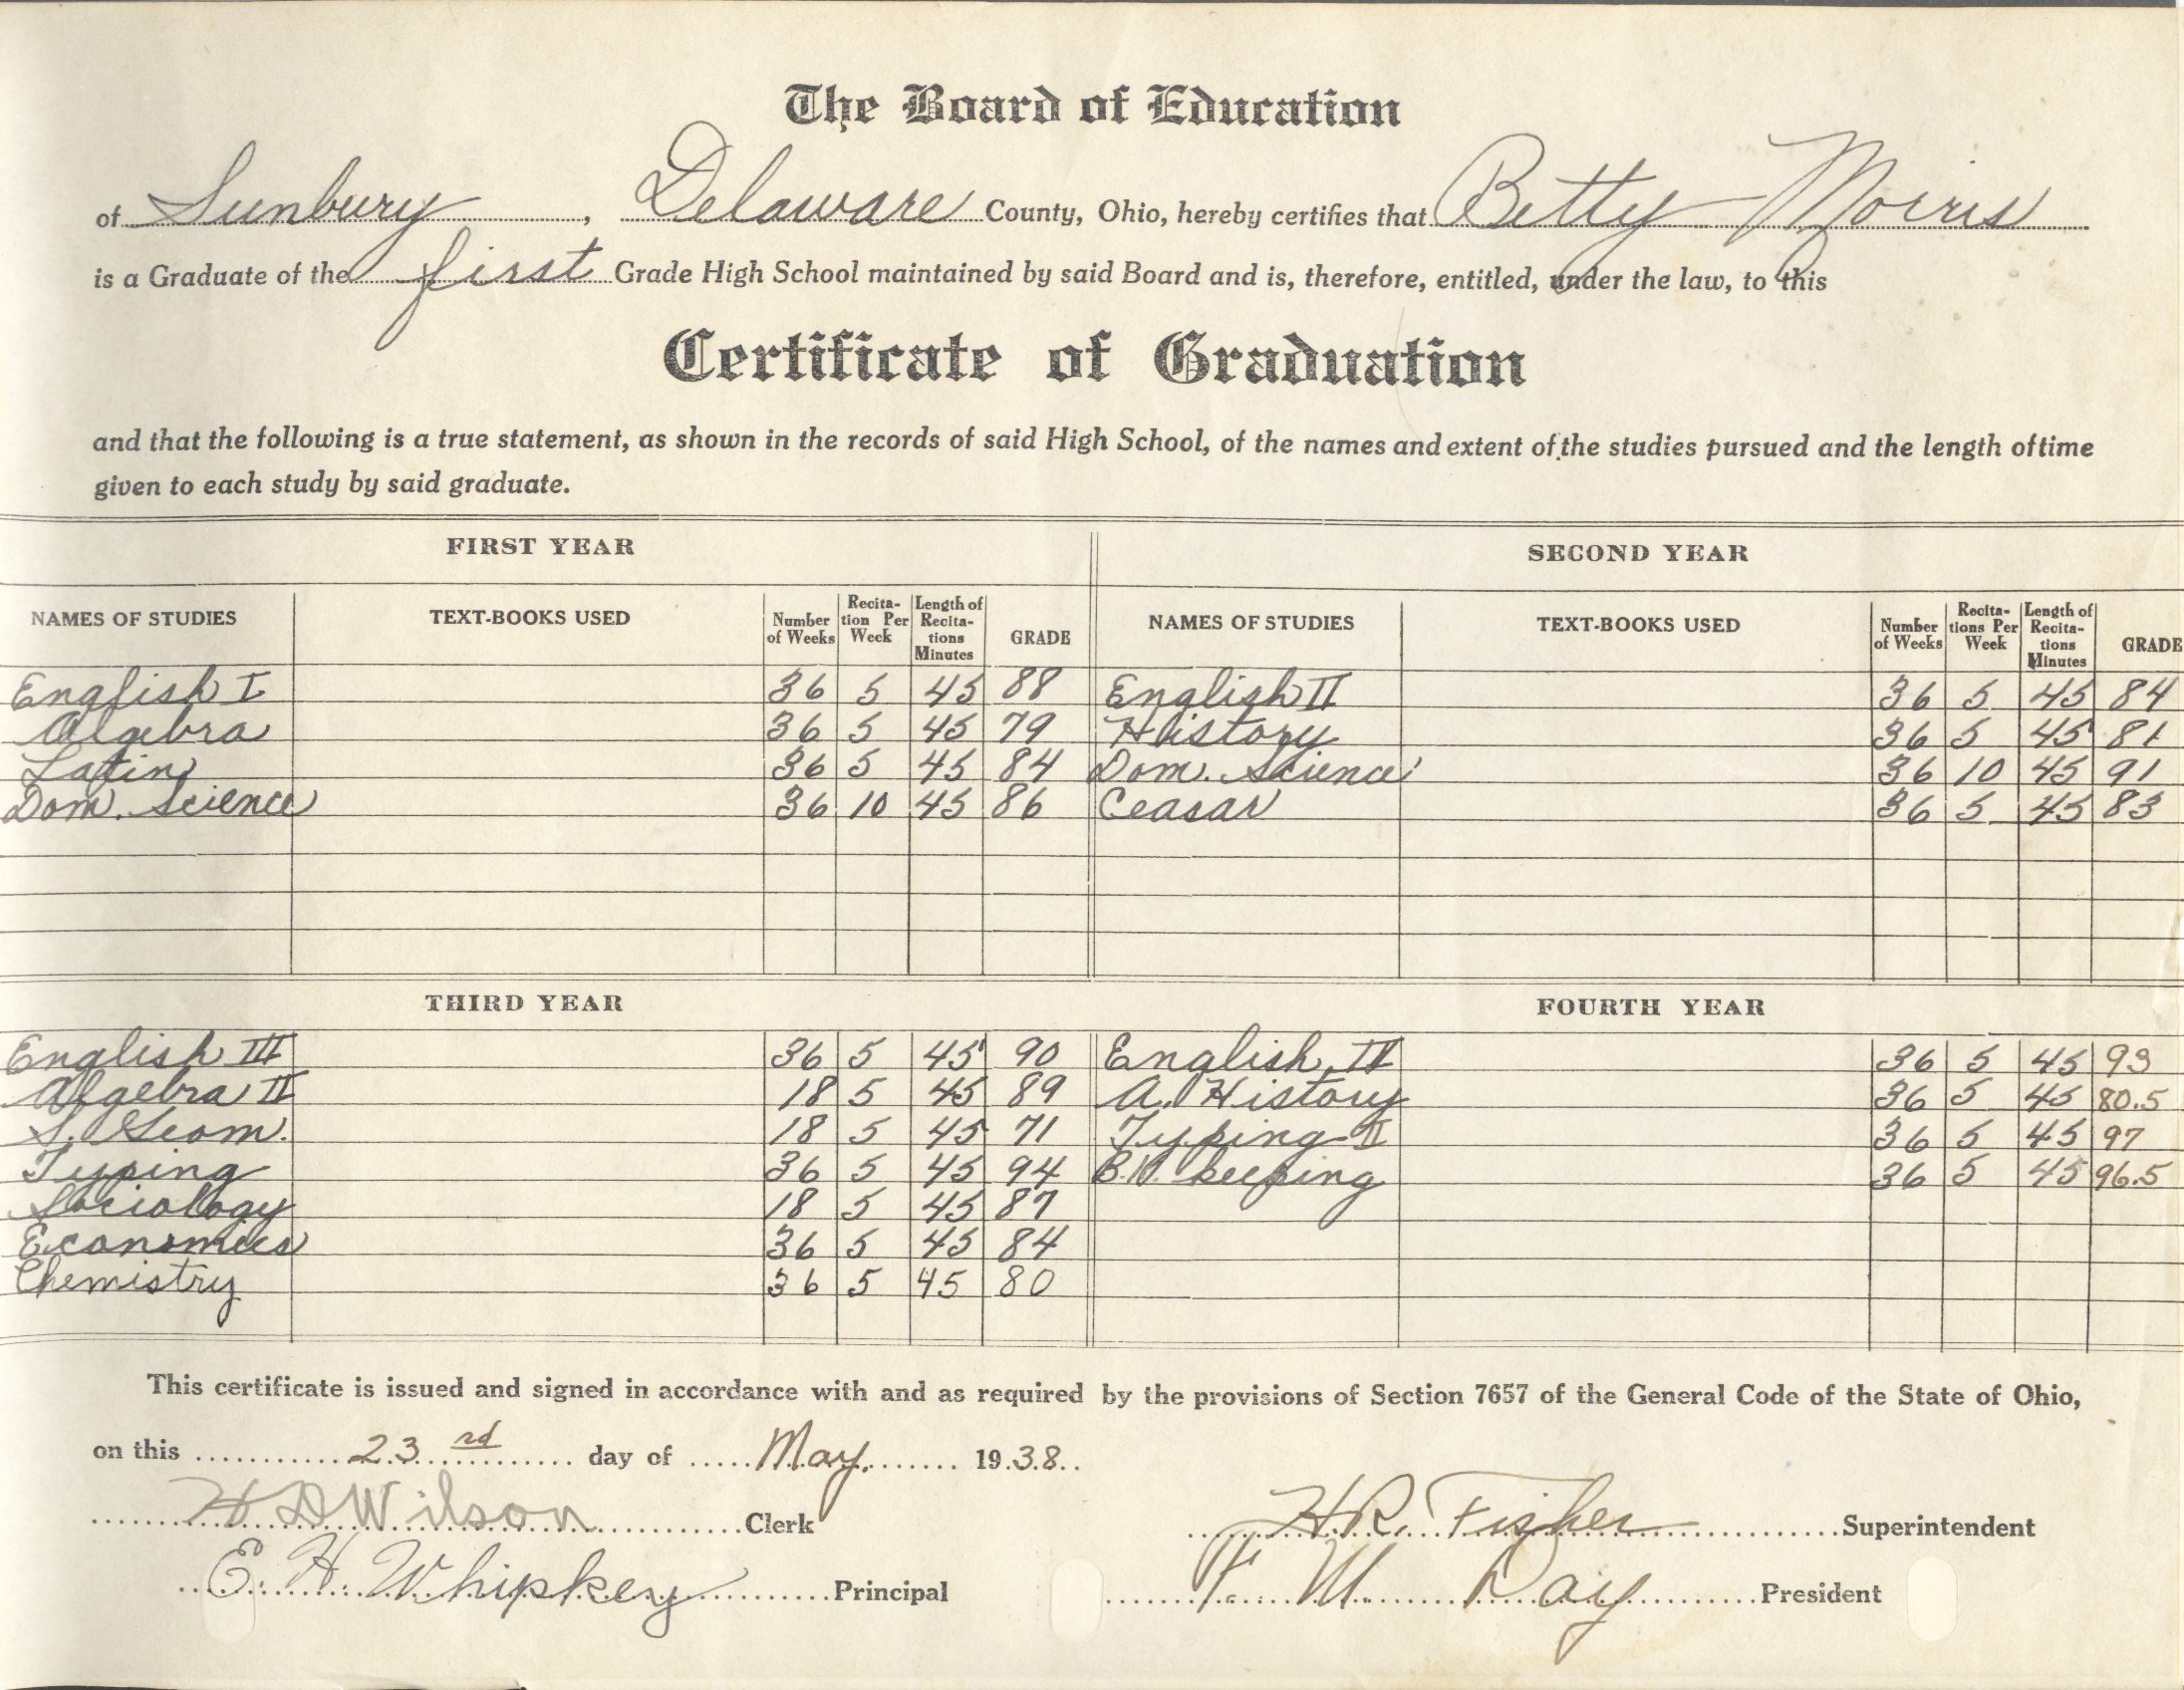 The Board of Education
of Sunbury, Delaware County, Ohio, hereby certifies that Betty Morris
is a Graduate of the first Grade High School maintained by said Board and is, therefore, entitled, under the law, to this
Certificate of Graduation
and that the following is a true statement, as shown in the records of said High School, of the names and extent of the studies pursued and the length of time
given to each study by said graduate.
FIRST YEAR
NAMES OF STUDIES TEXT-BOOKS USED Number of Weeks Recita-tion Per Week Length of Recita-tions Minutes GRADE
English I 36 5 45 88
Algebra 36 5 45 79
Latin 36 5 45 84
Dom. Science 36 10 45 86
SECOND YEAR
NAMES OF STUDIES TEXT-BOOKS USED Number of Weeks Recita-tions Per Week Length of Recita-tions Minutes GRADE
English II 36 5 45 84
History 36 5 45 81
Dom. Science 36 10 45 91
Ceasar 36 5 45 83
THIRD YEAR
English III 36 5 45 90
Algebra II 18 5 45 89
S. Geom. 18 5 45 71
Typing 36 5 45 94
Sociology 18 5 45 87
Economics 36 5 45 84
Chemistry 36 5 45 80
FOURTH YEAR
English IV 36 5 45 93
A. History 36 5 45 80.5
Typing II 36 5 45 97
B.K. keeping 36 5 45 96.5
This certificate is issued and signed in accordance with and as required by the provisions of Section 7657 of the General Code of the State of Ohio,
on this 23rd day of May. 1938.
H D Wilson Clerk
H.R. Fisher Superintendent
E. H. Whipkey Principal
F. M. Day President